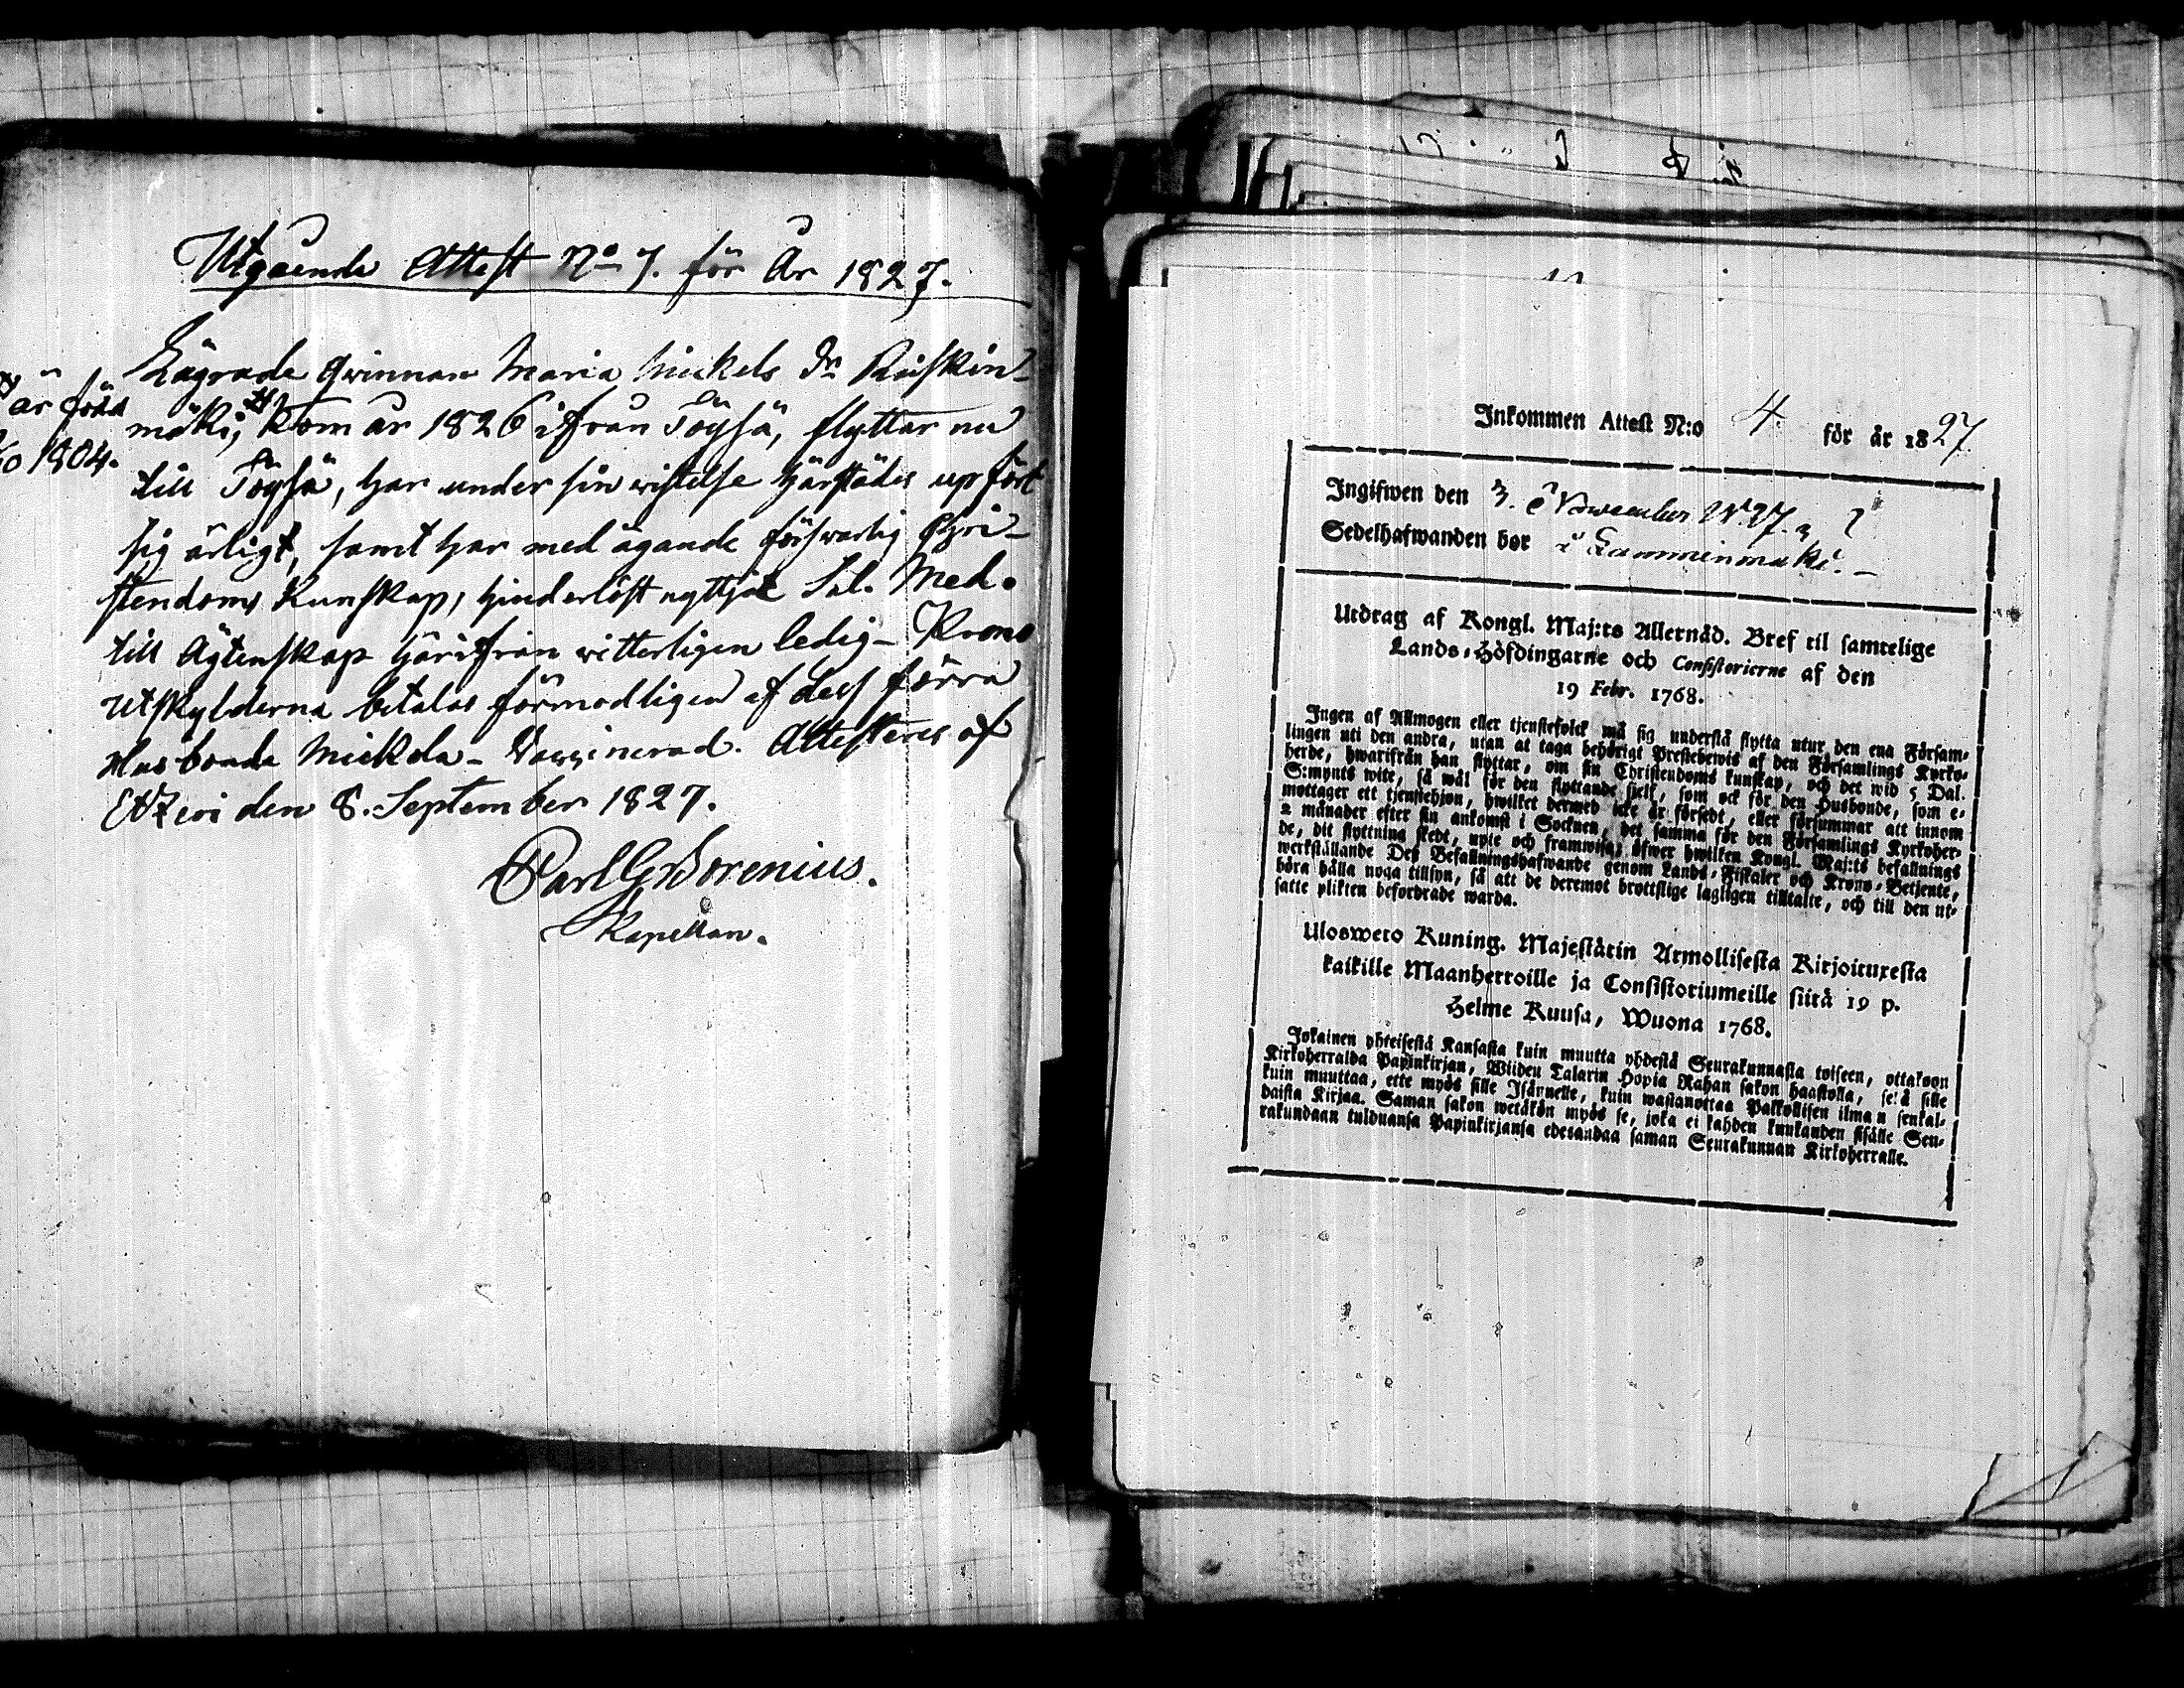 Utgående Attest No 7. för År 1827.
Lägrade Qwinnan Maria Mickels dr Ruskin-
mäki, # kom år 1826 ifrån Töysä, flyttar nu
till Töysä, har under sin wistelse härstädes upfört
sig ärligt, samt har med ägande förswarlig Chri-
stendoms Kunskap, hinderlöst nyttjat Sal. Med.
till Ägtenskap härifrån witterligen ledig - Krono
Utskylderna betalas förmodligen af dess förra
Husbonde Mickola - Vaccinerad. Attesteres af
Etzeri den 8. September 1827.
Carl G Borenius.
Kapellan.
# är född
1804.
Inkommen Attest N:o 4. för år 1827.
Ingifwen den 3. November 1827.
Sedelhafwanden bor i Lamminmäki. -
Utdrag af Kongl. Maj:ts Allernåd. Bref til samtelige
Lands-Höfdingarne och Consistorierne af den
19 Febr. 1768.
Ingen af Allmogen eller tjenstefolck må sig understå flytta utur den ena Försam-
lingen uti den andra, utan at taga behörigt Prestebewis af den Församlings Kyrko-
herde, hwarifrån han flyttar, om sin Christendoms kunskap, och det wid 5 Dal.
S:mynts wite, så wäl för den flyttande sjelf, som ock för den Husbonde, som e-
mottager ett tjenstehjon, hwilket dermed icke är försedt, eller försummar att innom
2 månader efter sin ankomst i Socknen, det samma för den Församlings Kyrkoher-
de, dit flyttning skedt, upte och framwisa; öfwer hwilken Kongl. Maj:ts befallnings
werkställande Deß Befallningshafwande genom Lands-Fiskaler och Krono-Betjente,
böra hålla noga tillsyn, så att de deremot brottslige lagligen tilltalte, och till den ut-
satte plikten befordrade warda.
Ulosweto Kuning. Majestätin Armollisesta Kirjoituxesta
kaikille Maanherroille ja Consistoriumeille siitä 19 p.
Helme Kuusa, Wuona 1768.
Jokainen yhteisestä Kansasta kuin muutta yhdestä Seurakunnasta toiseen, ottakoon
Kirkoherralda Papinkirjan, Wiiden Talarin Hopia Rahan sakon haastolla, sekä sille
kuin muuttaa, ette myös sille Isännelle, kuin wastanottaa Palkollisen ilman senkal-
daista Kirjaa. Saman sakon wetäkön myös se, joka ei kahden kuukauden sisälle Seu-
rakundaan tulduansa Papinkirjansa edesandaa saman Seurakunnan Kirkoherralle.